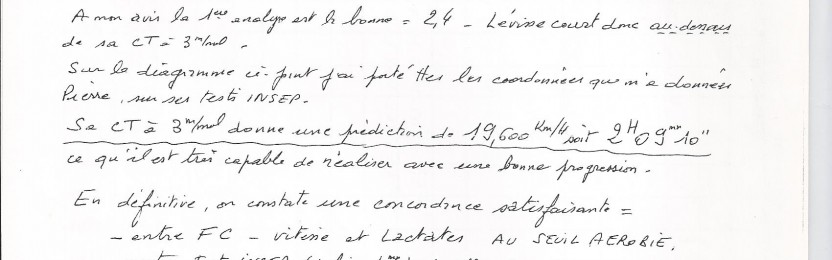 A mon avis la 1ère analyse est la bonne = 2,4 - Lévisse court donc au-dessus
de sa CT à 3 m/mol.
Sur le diagramme ci-joint j'ai porté ttes les coordonnées que m'a données
Pierre, sur ses tests INSEP.
Sa CT à 3 m/mol donne une prédiction de 19,600 Km/H soit 2H09mn10"
ce qu'il est très capable de réaliser avec une bonne progression.
En définitive, on constate une concordance satisfaisante =
- entre FC - vitesse et Lactates AU SEUIL AEROBIE,